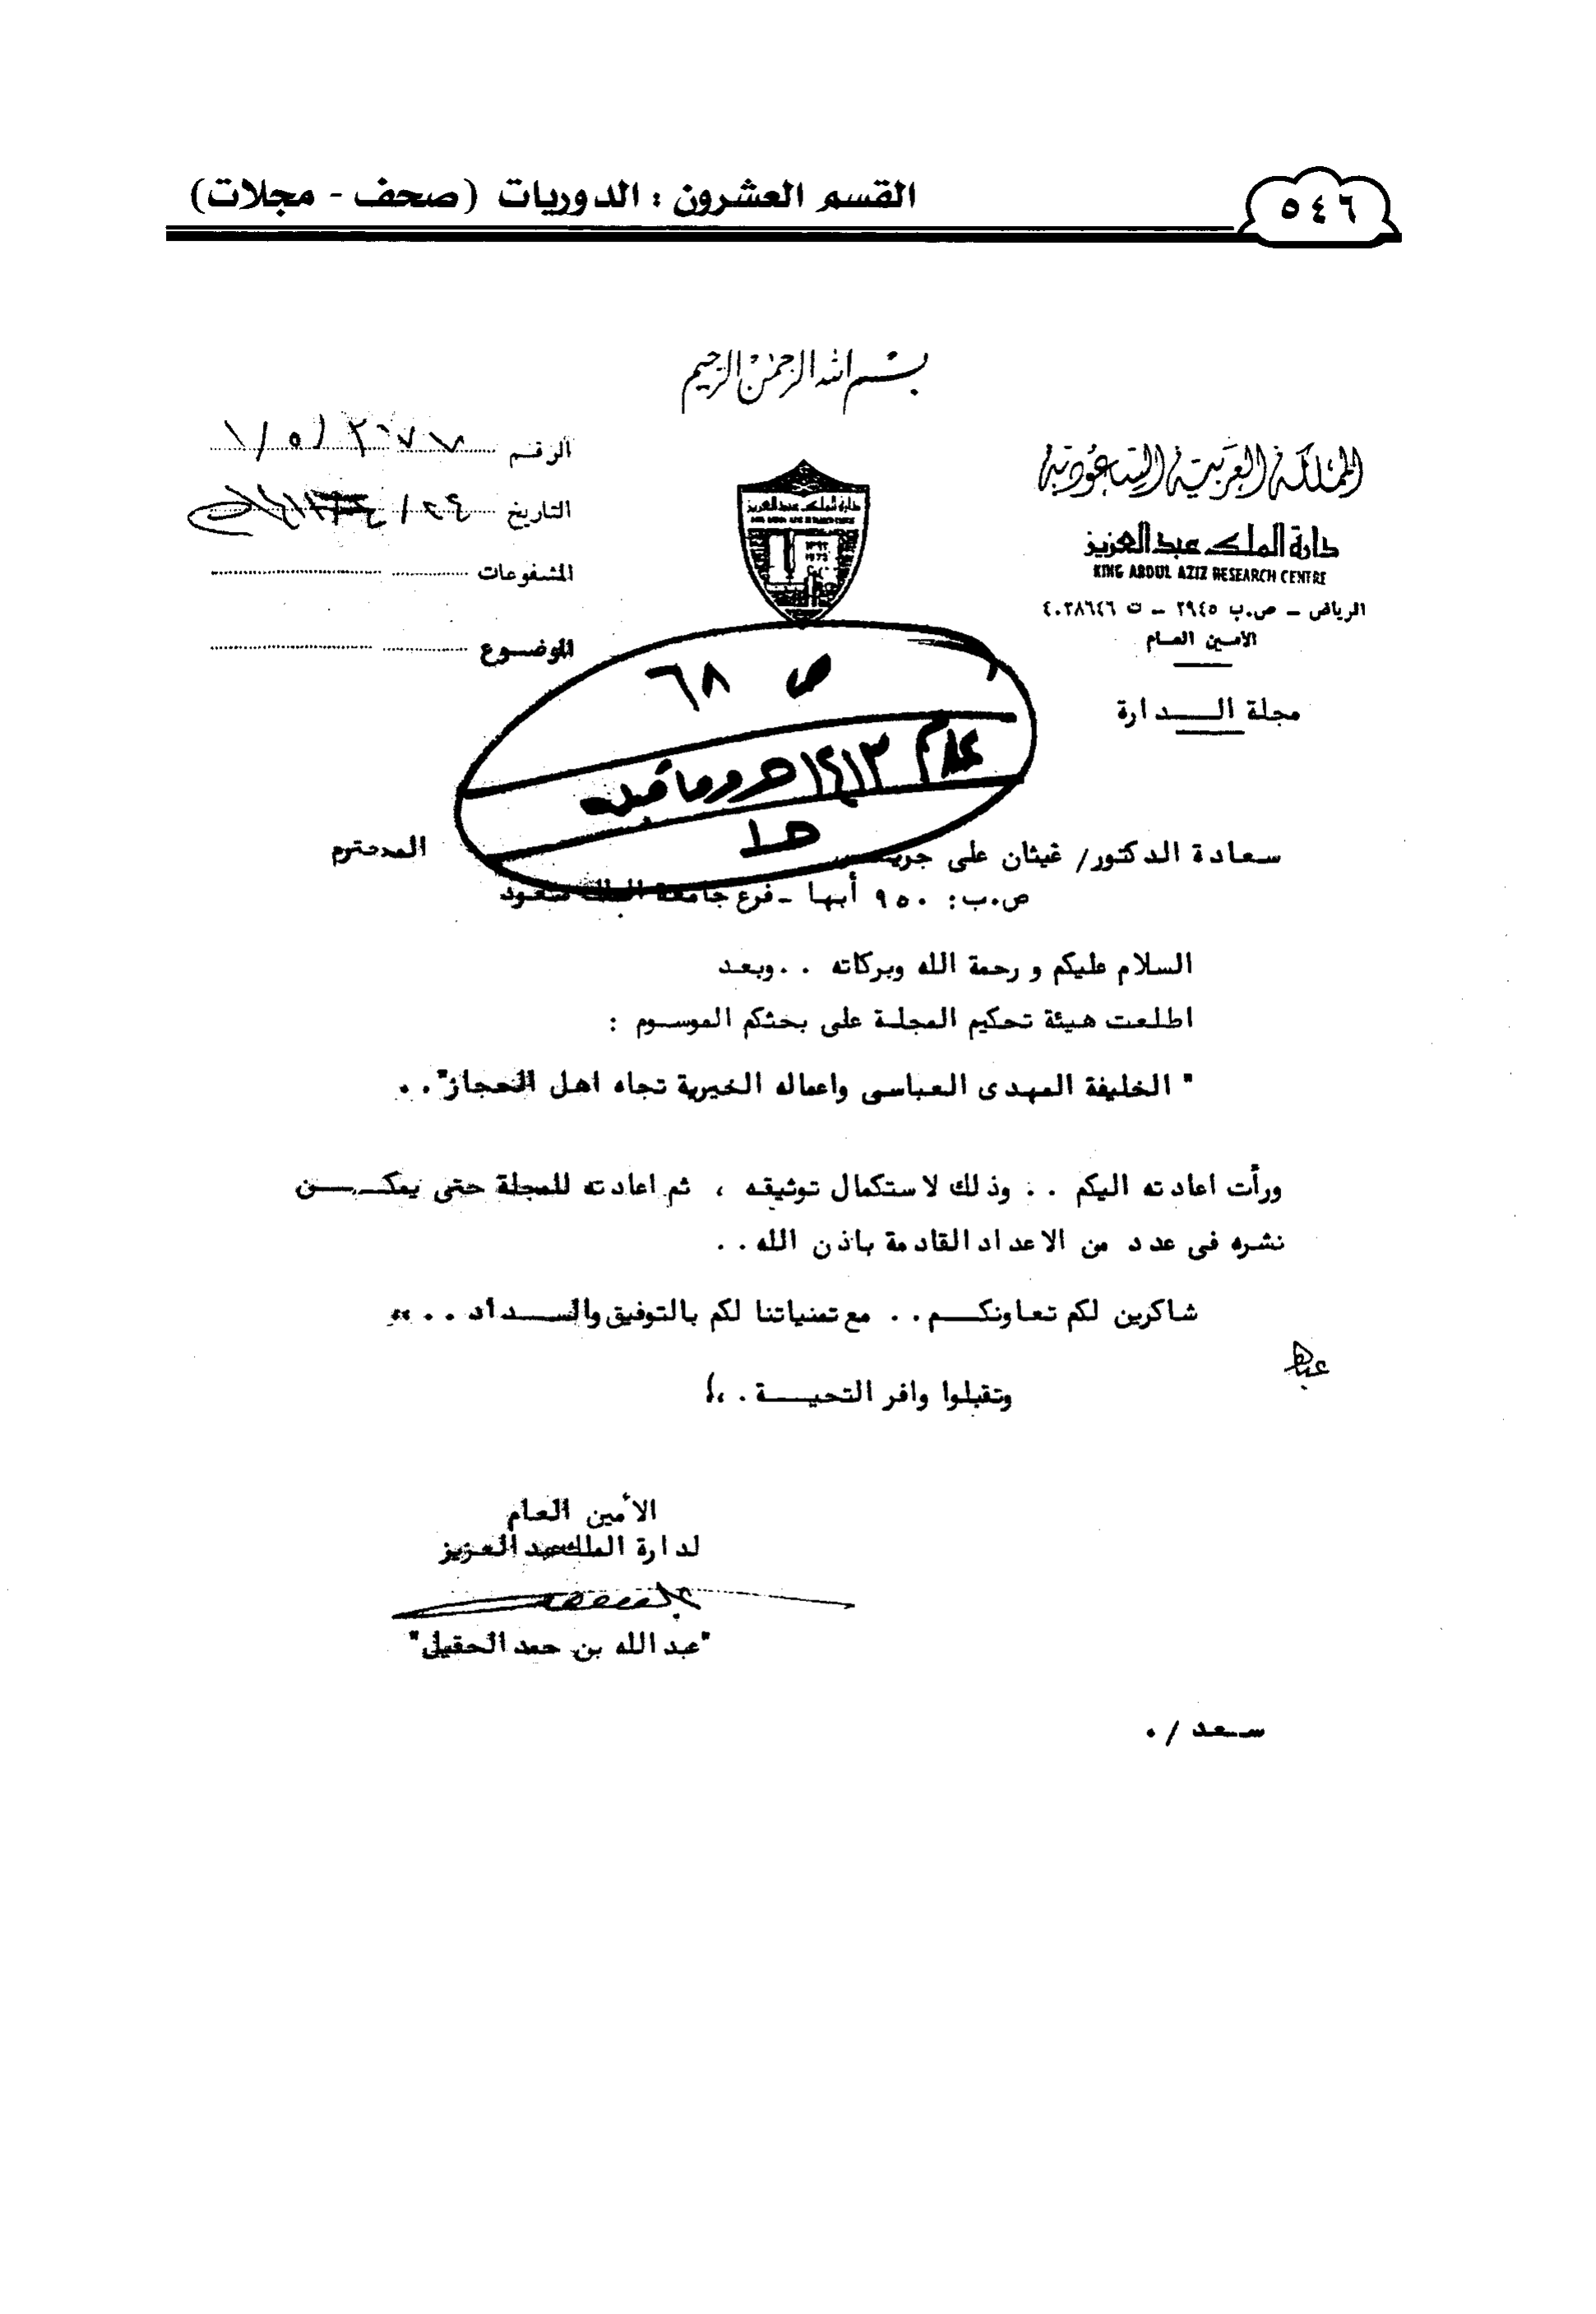 ٥٤٦
القسم العشرون : الدوريات (صحف - مجلات)
بسم الله الرحمن الرحيم
المملكة العربية السعودية
دارة الملك عبد العزيز
KING ABDUL AZIZ RESEARCH CENTRE
الرياض – ص.ب ٢٩٤٥ – ت ٤٠٢٨٦٤٦
الأمين العام
مجلة الــدارة
الرقم ١/٥/٢٦٧٧
التاريخ
المشفوعات
الموضوع
دارة الملك عبد العزيز
ص ٦٨
عام ١٤١٣هـ وما قبله
سعادة الدكتور/ غيثان على المحترم
ص.ب: ٩٥٠ أبها - فرع جامعة الملك سعود
السلام عليكم ورحمة الله وبركاته . . وبعد
اطلعت هيئة تحكيم المجلة على بحثكم الموسوم :
" الخليفة المهدى العباسى واعماله الخيرية تجاه اهل الحجاز" . .
ورأت اعادته اليكم . . وذلك لاستكمال توثيقه ، ثم اعادته للمجلة حتى يمكــن
نشره فى عدد من الاعداد القادمة باذن الله . .
شاكرين لكم تعاونكــم . . مع تمنياتنا لكم بالتوفيق والســداد . . ،،
وتقبلوا وافر التحيــة . ،،
الأمين العام
لدارة الملك عبد العزيز
"عبد الله بن حمد الحقيل"
سـعد / ٠